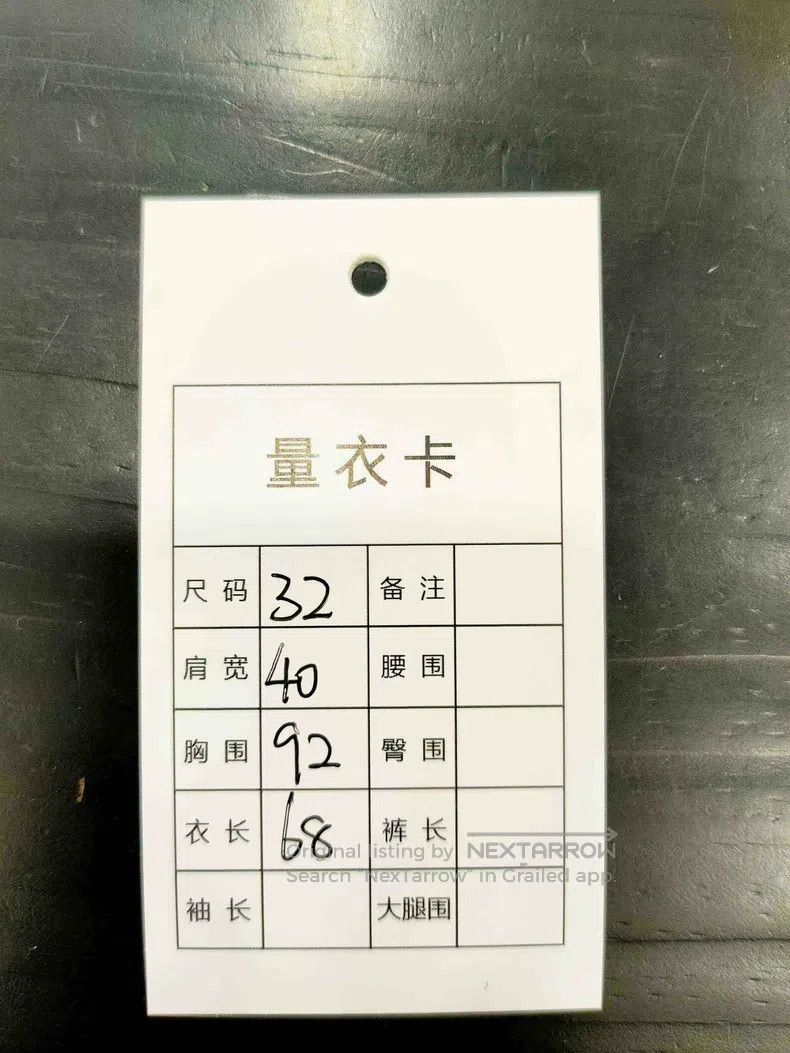 量衣卡
尺码 32 备注
肩宽 40 腰围
胸围 92 臀围
衣长 68 裤长
Original listing by NEXTARROW
Search "NexTarrow" in Grailed app
袖长 大腿围